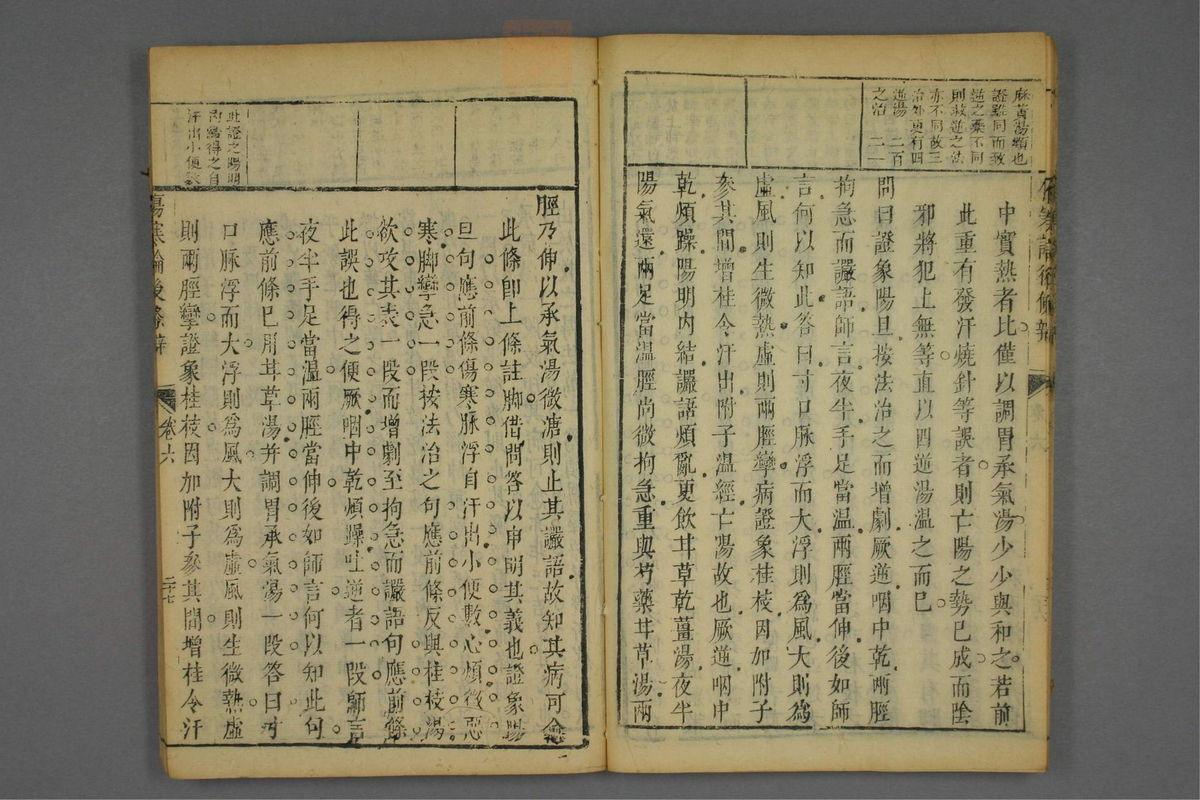 麻黃湯類也
證雖同而致
逆之藥不同
則救逆之法
亦不同故三
治外更有四
逆湯 二百
之治 二一
中實熱者比僅以調胃承氣湯少少與和之若前
此重有發汗燒針等誤者則亡陽之勢已成而陰
邪將犯上無等直以四逆湯溫之而已
問曰證象陽旦按法治之而增劇厥逆咽中乾兩脛
拘急而讝語師言夜半手足當溫兩脛當伸後如師
言何以知此答曰寸口脉浮而大浮則為風大則為
虛風則生微熱虛則兩脛攣病證象桂枝因加附子
參其間增桂令汗出附子溫經亡陽故也厥逆咽中
乾煩躁陽明內結讝語煩亂更飲甘草乾薑湯夜半
陽氣還兩足當溫脛尚微拘急重與芍藥甘草湯爾
脛乃伸以承氣湯微溏則止其讝語故知其病可愈
此條即上條註脚借問答以申明其義也證象陽
旦句應前條傷寒脉浮自汗出小便數心煩微惡
寒脚攣急一段按法治之句應前條反與桂枝湯
欲攻其表一段而增劇至拘急而讝語句應前條
此誤也得之便厥咽中乾煩躁吐逆者一段師言
夜半手足當溫兩脛當伸後如師言何以知此句
應前條已用甘草湯并調胃承氣湯一段答曰寸
口脉浮而大浮則為風大則為虛風則生微熱虛
則兩脛攣證象桂枝因加附子參其間增桂令汗
此證之陽明
汗出小便數
傷寒論後條辨
卷六
二十七